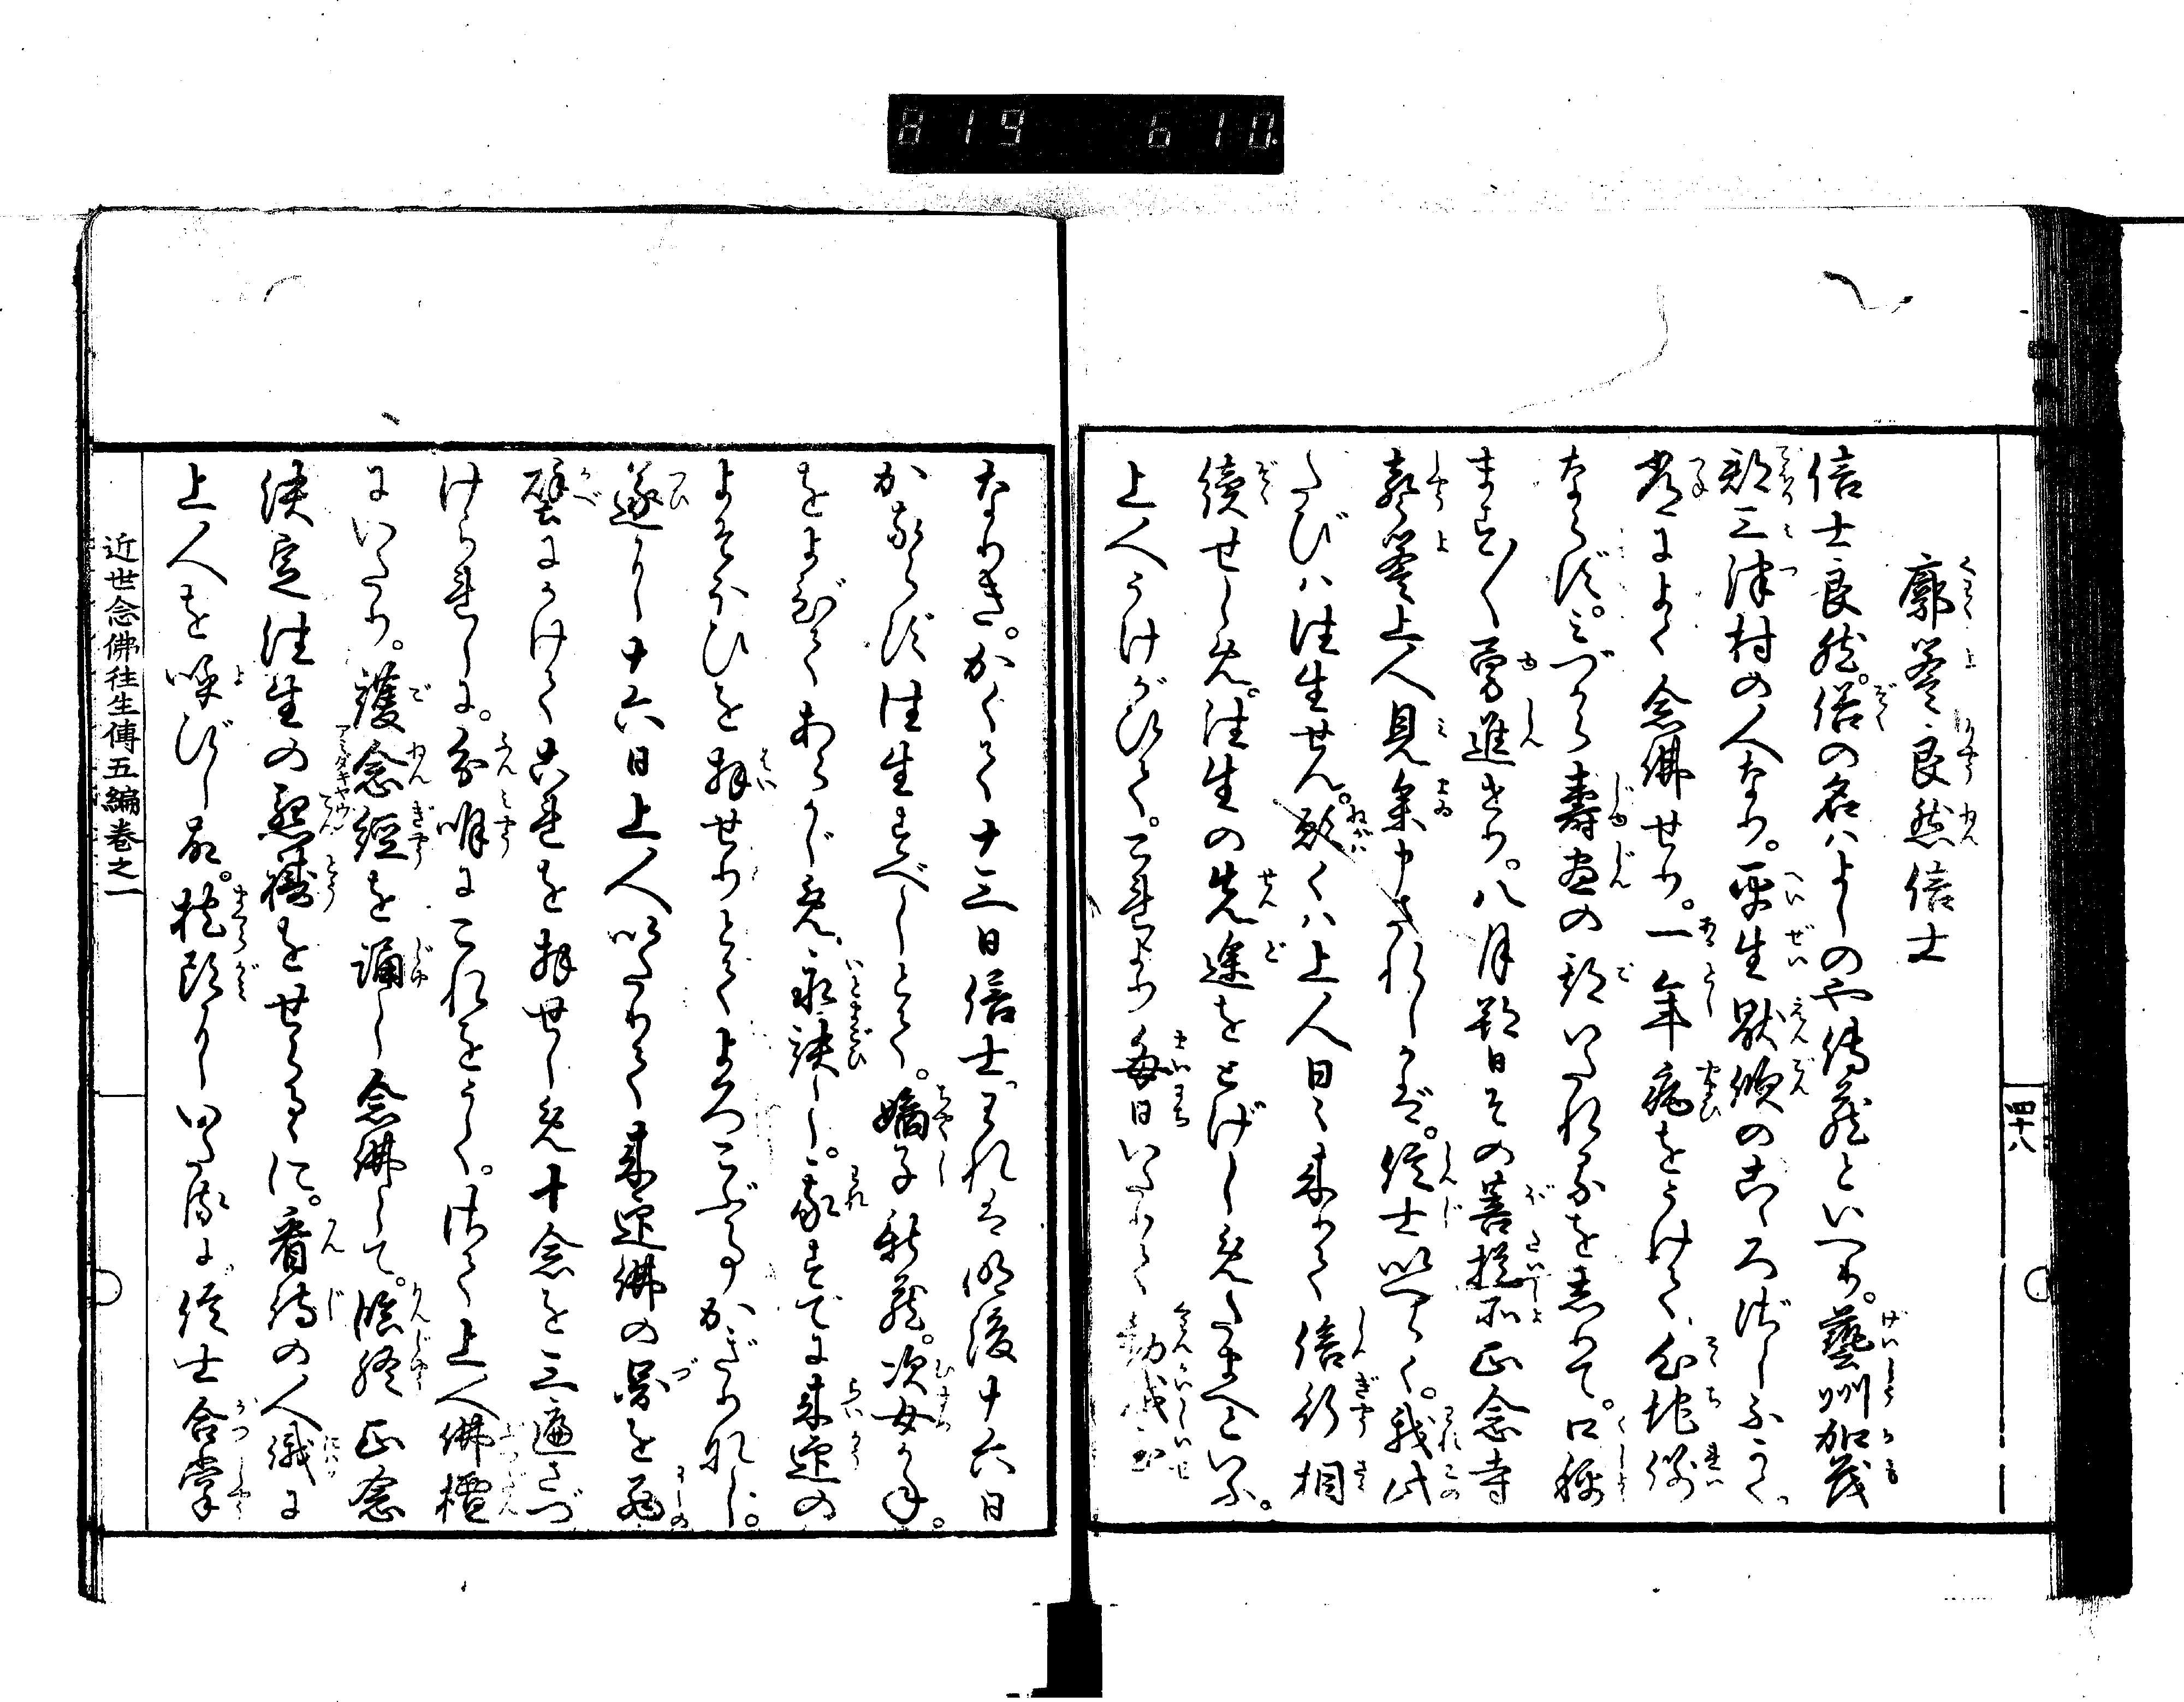 819 610.
四十八
廓譽良然信士
信士良然。俗の名ハよしのや傳藏といへり。藝州加茂
郡三津村の人なり。平生厭欣のこゝろざしふかく。
常によく念佛せり。一年病をうけて、心地例
ならず。みづから壽盡の期いたれるを知りて。口稱
ます〳〵勇進せり。八月朔日その菩提所正念寺
上人見舞申されしかば。信士いへらく。我此
たびハ往生せん。願くハ上人日々来りて信行相
續せしめ。往生の先途をとげしめたまへといふ。
上人うけがひて。これより毎日いたりて勸誡
なりき。かくて十三日信士われは明後十六日
かならず往生すべしとて。嫡子新藏。次女かね。
をよびてあらかじめ永訣し。我すでに来迎の
よそほひを拜せりとてよろこぶ事かぎりなし。
遂にし十六日上人いたりて来迎佛の畧を
壁にかけてこれを拜せしめ十念を三遍さづ
けられしに。分明にこれをうく。さて上人佛檀
にいたり。護念經を誦し念佛して。臨終正念
決定往生の懇禱をせらるゝに。看侍の人纔に
上人を呼びし故。枕頭にしいたるに。信士合掌
近世念佛往生傳五編卷之一